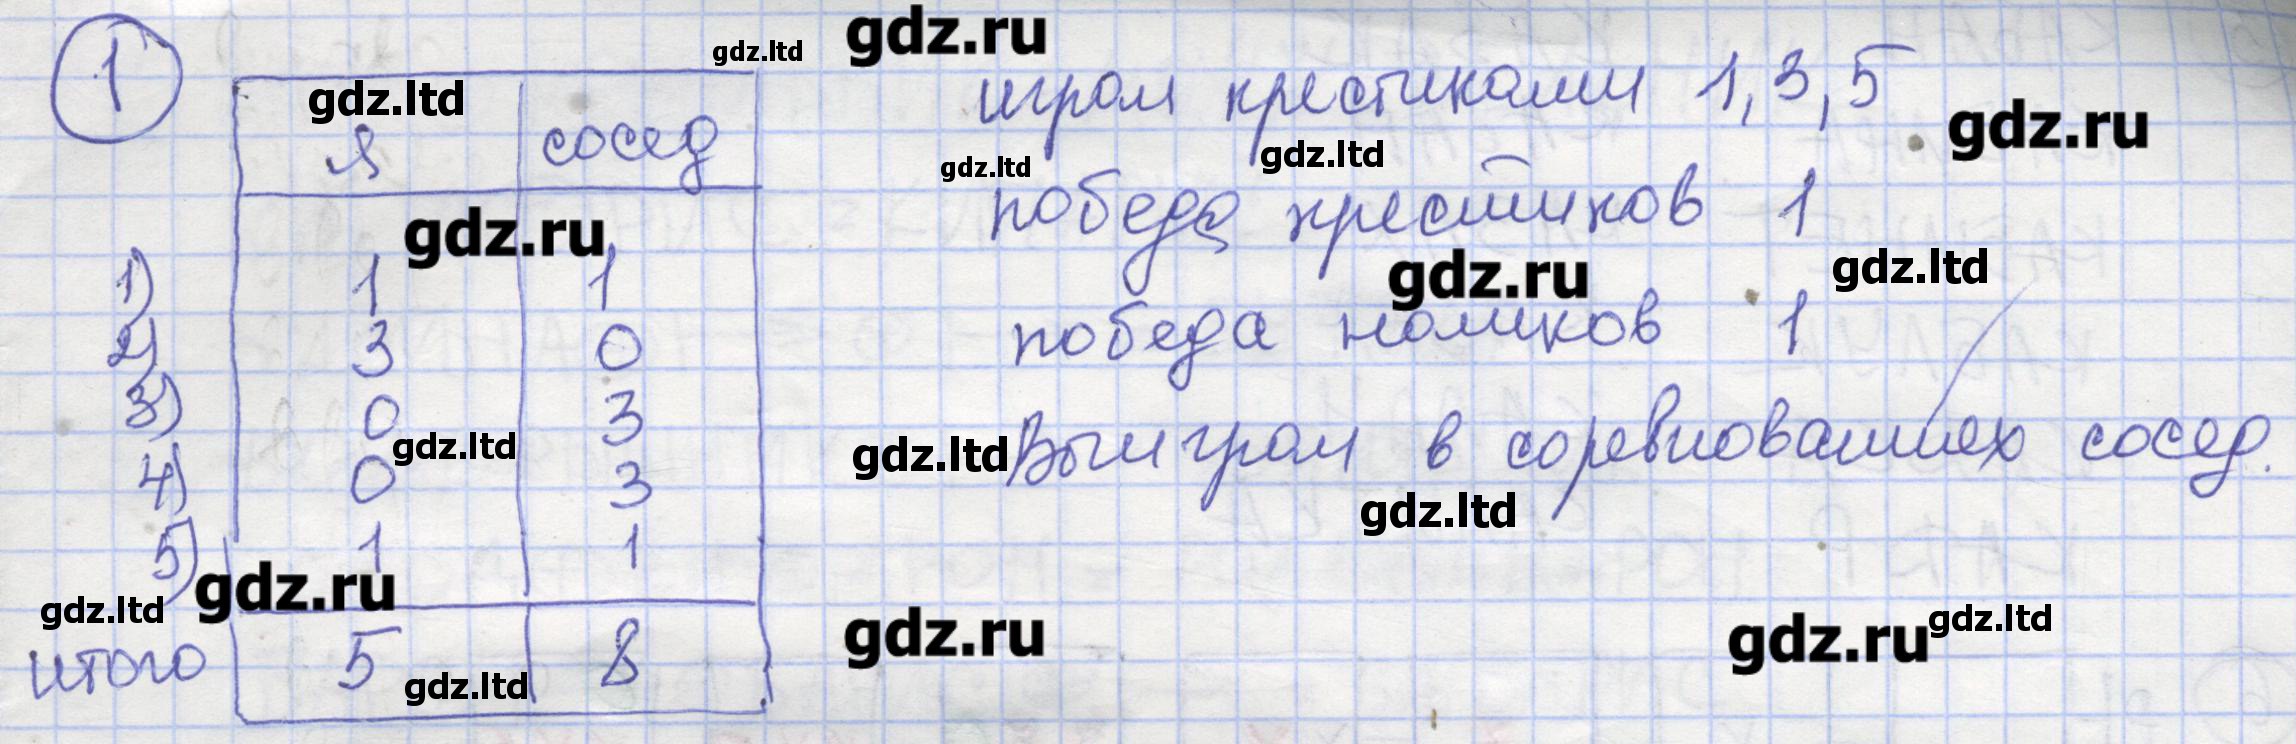 1
я сосед
1) 1 1
2) 3 0
3) 0 3
4) 0 3
5) 1 1
итого 5 8
играл крестиками 1, 3, 5
победа крестиков 1
победа ноликов 1
Выиграл в соревнованиях сосед.
gdz.ltd
gdz.ru
gdz.ltd
gdz.ru
gdz.ltd
gdz.ltd
gdz.ru
gdz.ru
gdz.ltd
gdz.ltd
gdz.ltd
gdz.ltd
gdz.ru
gdz.ltd
gdz.ru
gdz.ru
gdz.ltd
gdz.ltd